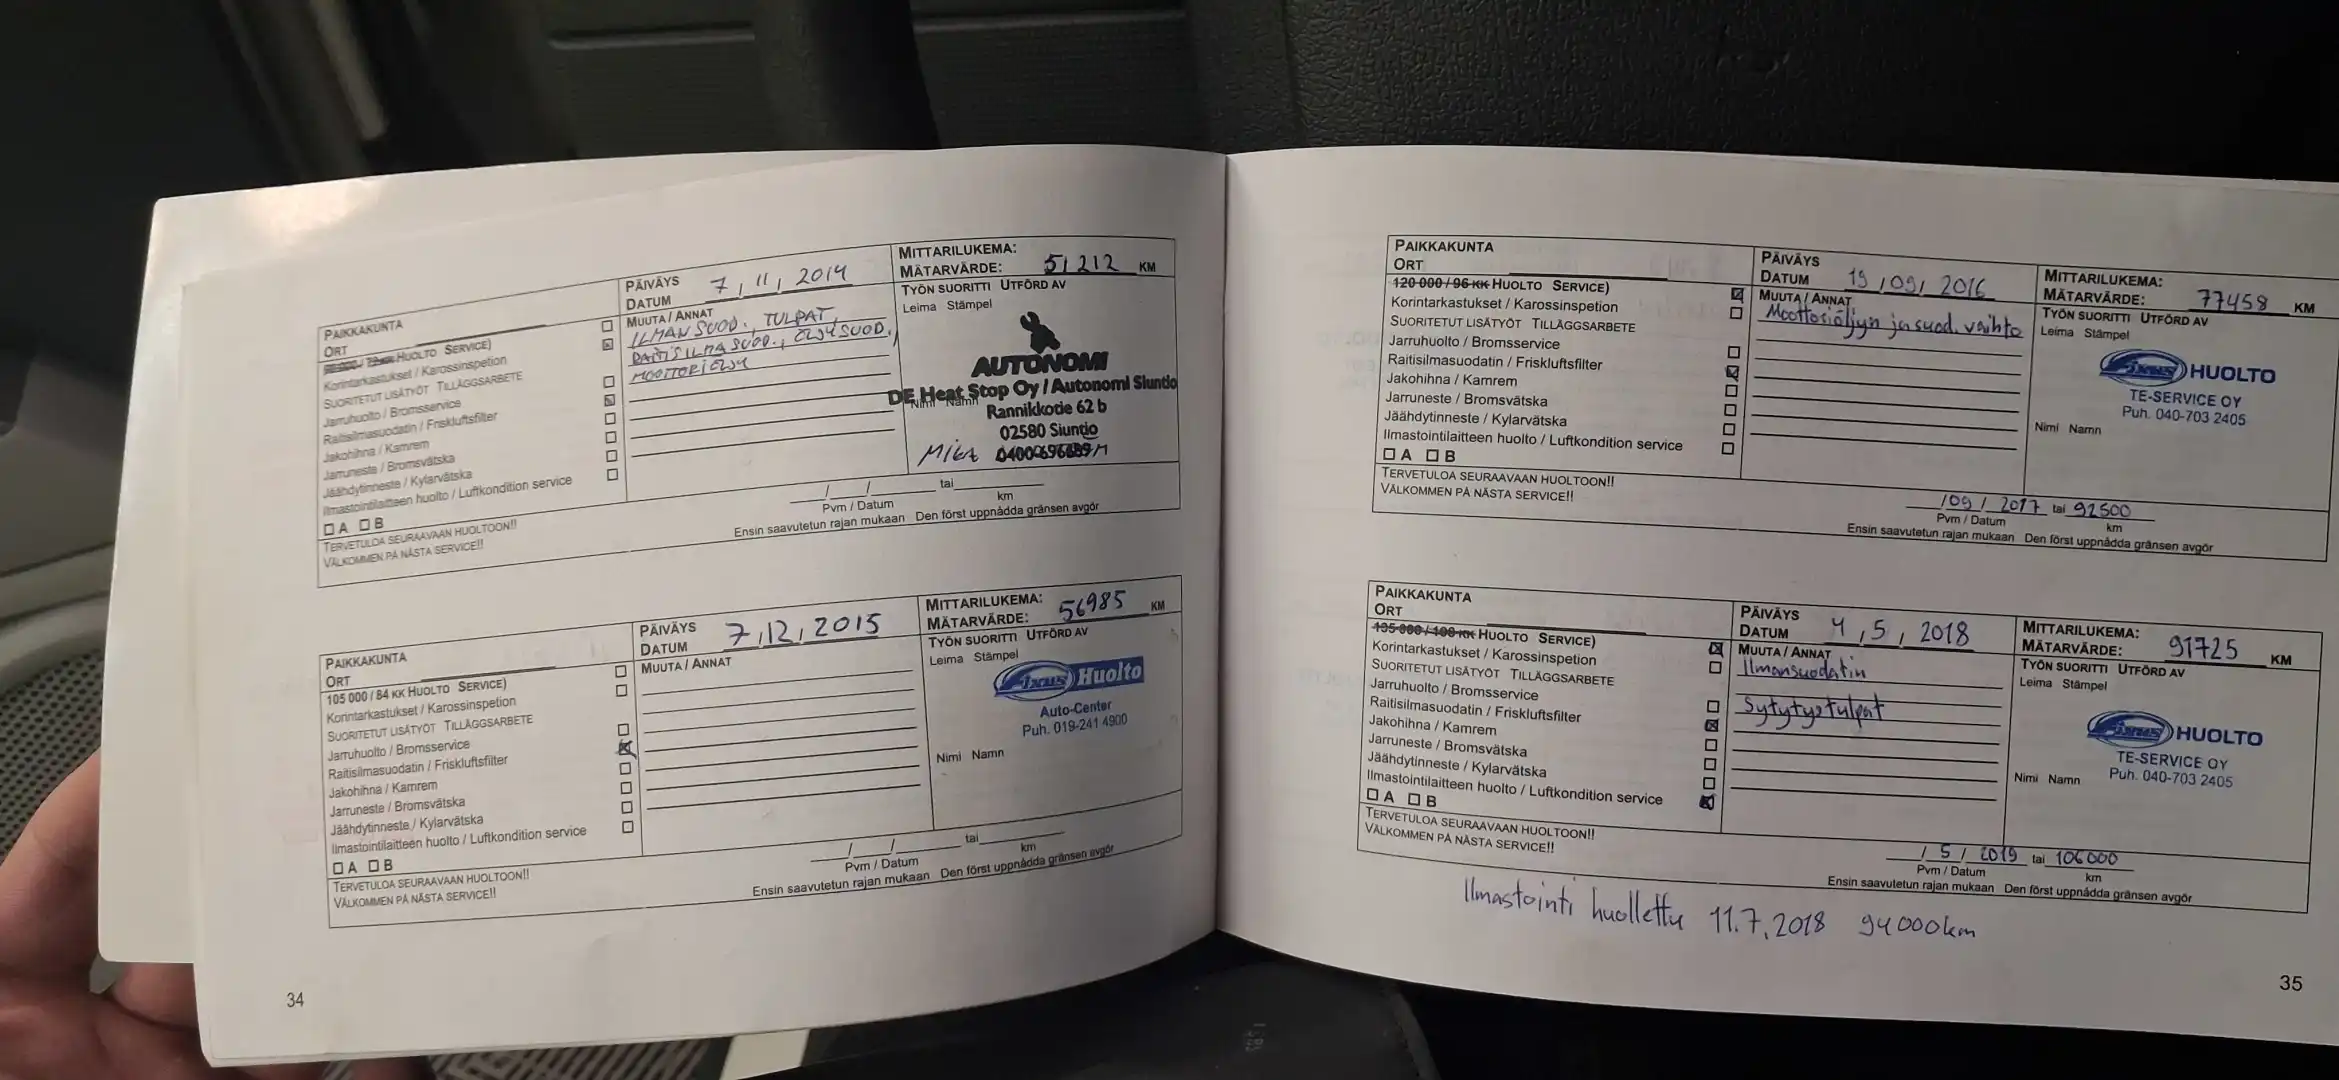 PAIKKAKUNTA
ORT
PÄIVÄYS
DATUM 7, 11, 2014
MITTARILUKEMA:
MÄTARVÄRDE: 51212 KM
HUOLTO SERVICE)
Korintarkastukset / Karossinspetion
SUORITETUT LISÄTYÖT TILLÄGGSARBETE
Jarruhuolto / Bromsservice
Raitisilmasuodatin / Friskluftsfilter
Jakohihna / Kamrem
Jarruneste / Bromsvätska
Jäähdytinneste / Kylarvätska
Ilmastointilaitteen huolto / Luftkondition service
A B
MUUTA / ANNAT
ILMANSUOD., TULPAT,
RAITISILMASUOD., ÖLJYSUOD.,
MOOTTORIÖLJY
TYÖN SUORITTI UTFÖRD AV
Leima Stämpel
AUTONOMI
DE Heat Stop Oy / Autonomi Siuntio
Nimi Namn
Rannikkotie 62 b
02580 Siuntio
MIKA
TERVETULOA SEURAAVAAN HUOLTOON!!
VÄLKOMMEN PÅ NÄSTA SERVICE!!
/ / tai
Pvm / Datum km
Ensin saavutetun rajan mukaan Den först uppnådda gränsen avgör
PAIKKAKUNTA
ORT
PÄIVÄYS
DATUM 7, 12, 2015
MITTARILUKEMA:
MÄTARVÄRDE: 56985 KM
105 000 / 84 KK HUOLTO SERVICE)
Korintarkastukset / Karossinspetion
SUORITETUT LISÄTYÖT TILLÄGGSARBETE
Jarruhuolto / Bromsservice
Raitisilmasuodatin / Friskluftsfilter
Jakohihna / Kamrem
Jarruneste / Bromsvätska
Jäähdytinneste / Kylarvätska
Ilmastointilaitteen huolto / Luftkondition service
A B
MUUTA / ANNAT
TYÖN SUORITTI UTFÖRD AV
Leima Stämpel
Fixus Huolto
Auto-Center
Puh. 019-241 4900
Nimi Namn
TERVETULOA SEURAAVAAN HUOLTOON!!
VÄLKOMMEN PÅ NÄSTA SERVICE!!
/ / tai
Pvm / Datum km
Ensin saavutetun rajan mukaan Den först uppnådda gränsen avgör
34
PAIKKAKUNTA
ORT
PÄIVÄYS
DATUM 19, 09, 2016
MITTARILUKEMA:
MÄTARVÄRDE: 77458 KM
120 000 / 96 KK HUOLTO SERVICE)
Korintarkastukset / Karossinspetion
SUORITETUT LISÄTYÖT TILLÄGGSARBETE
Jarruhuolto / Bromsservice
Raitisilmasuodatin / Friskluftsfilter
Jakohihna / Kamrem
Jarruneste / Bromsvätska
Jäähdytinneste / Kylarvätska
Ilmastointilaitteen huolto / Luftkondition service
A B
MUUTA / ANNAT
Moottoriöljyn ja suod. vaihto
TYÖN SUORITTI UTFÖRD AV
Leima Stämpel
Fixus HUOLTO
TE-SERVICE OY
Puh. 040-703 2405
Nimi Namn
TERVETULOA SEURAAVAAN HUOLTOON!!
VÄLKOMMEN PÅ NÄSTA SERVICE!!
/ 09 / 2017 tai 92500
Pvm / Datum km
Ensin saavutetun rajan mukaan Den först uppnådda gränsen avgör
PAIKKAKUNTA
ORT
PÄIVÄYS
DATUM 4, 5, 2018
MITTARILUKEMA:
MÄTARVÄRDE: 91725 KM
135 000 / 108 KK HUOLTO SERVICE)
Korintarkastukset / Karossinspetion
SUORITETUT LISÄTYÖT TILLÄGGSARBETE
Jarruhuolto / Bromsservice
Raitisilmasuodatin / Friskluftsfilter
Jakohihna / Kamrem
Jarruneste / Bromsvätska
Jäähdytinneste / Kylarvätska
Ilmastointilaitteen huolto / Luftkondition service
A B
MUUTA / ANNAT
Ilmansuodatin
Sytytystulpat
TYÖN SUORITTI UTFÖRD AV
Leima Stämpel
Fixus HUOLTO
TE-SERVICE OY
Puh. 040-703 2405
Nimi Namn
TERVETULOA SEURAAVAAN HUOLTOON!!
VÄLKOMMEN PÅ NÄSTA SERVICE!!
/ 5 / 2019 tai 106000
Pvm / Datum km
Ensin saavutetun rajan mukaan Den först uppnådda gränsen avgör
Ilmastointi huollettu 11.7.2018 94000km
35